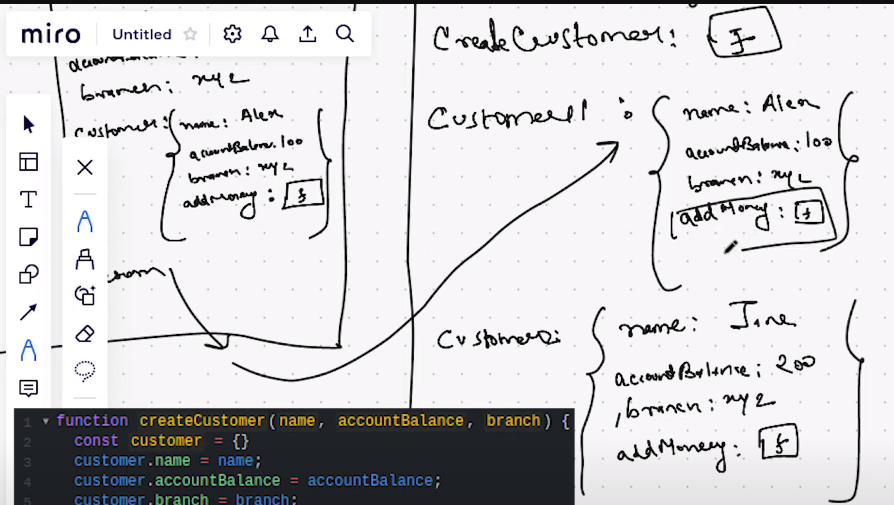 miro
Untitled
branch: xyz
customer: { name: Alex
accountBalance: 100
branch: xyz
addMoney: f }
CreateCustomer: f
Customer1 : { name: Alex
accountBalance: 100
branch: xyz
addMoney: f }
Customer2: { name: Jane
accountBalance: 200
, branch: xyz
addMoney: f }
1 function createCustomer(name, accountBalance, branch) {
2 const customer = {}
3 customer.name = name;
4 customer.accountBalance = accountBalance;
5 customer.branch = branch;